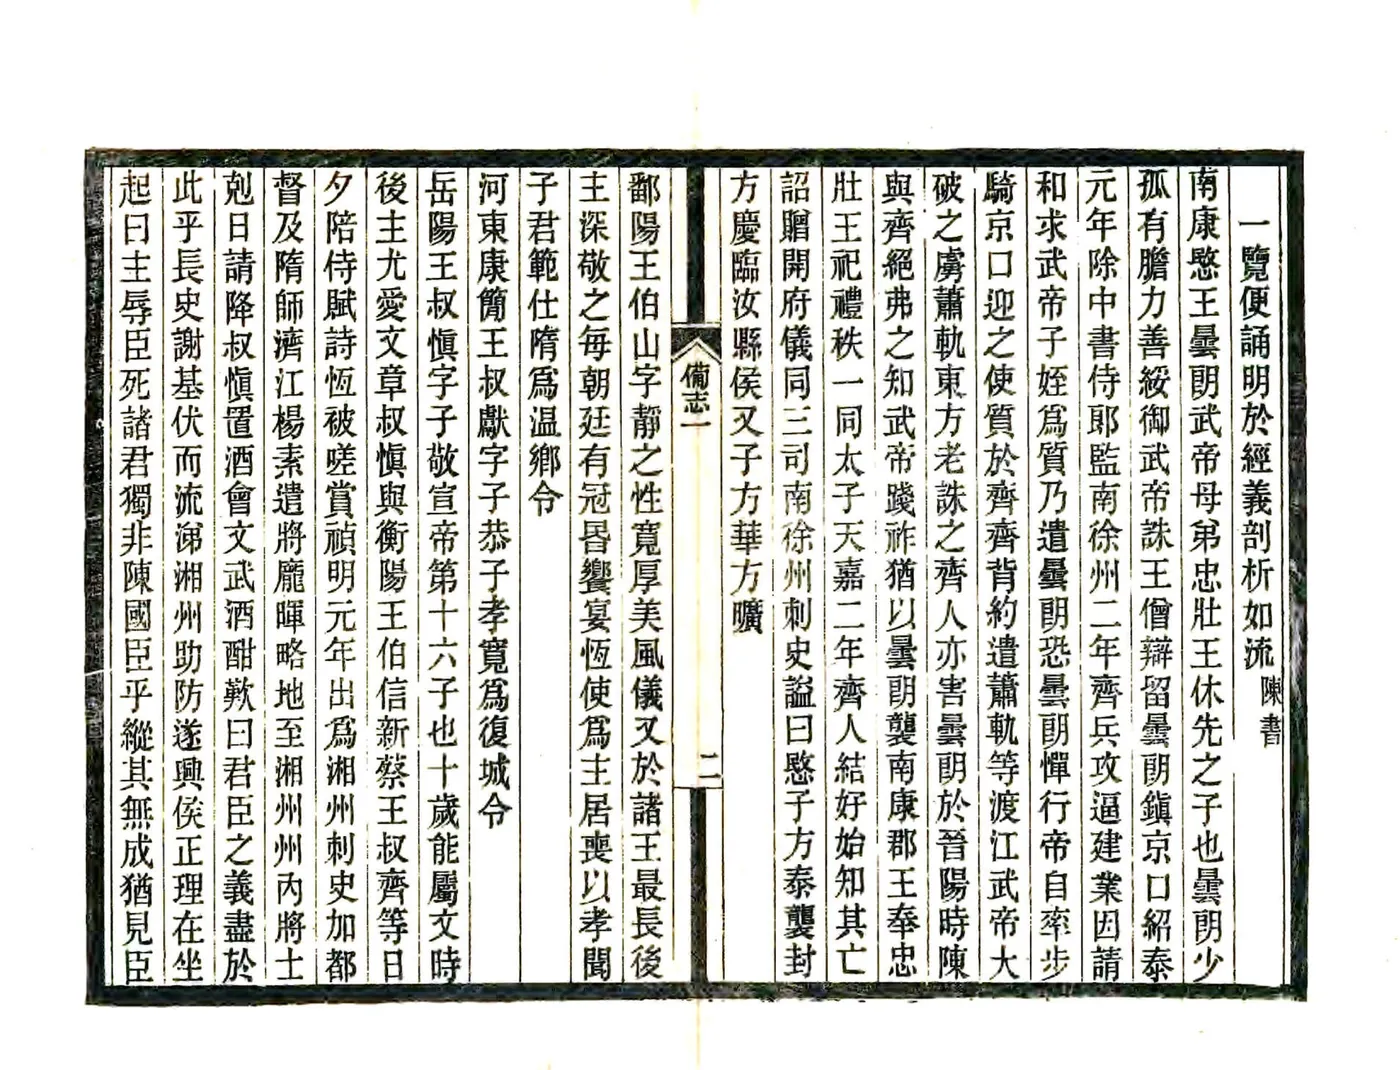 一覽便誦明於經義剖析如流陳書
南康愍王曇朗武帝母弟忠壯王休先之子也曇朗少
孤有膽力善綏御武帝誅王僧辯留曇朗鎮京口紹泰
元年除中書侍郎監南徐州二年齊兵攻逼建業因請
和求武帝子姪爲質乃遣曇朗恐曇朗憚行帝自率步
騎京口迎之使質於齊齊背約遣蕭軌等渡江武帝大
破之虜蕭軌東方老誅之齊人亦害曇朗於晉陽時陳
與齊絕弗之知武帝踐祚猶以曇朗襲南康郡王奉忠
壯王祀禮秩一同太子天嘉二年齊人結好始知其亡
詔贈開府儀同三司南徐州刺史諡曰愍子方泰襲封
方慶臨汝縣侯又子方華方曠
備志一
二
鄱陽王伯山字靜之性寬厚美風儀又於諸王最長後
主深敬之每朝廷有冠昏饗宴恆使爲主居喪以孝聞
子君範仕隋爲温鄉令
河東康簡王叔獻字子恭子孝寬爲復城令
岳陽王叔慎字子敬宣帝第十六子也十歲能屬文時
後主尤愛文章叔慎與衡陽王伯信新蔡王叔齊等日
夕陪侍賦詩恆被嗟賞禎明元年出爲湘州刺史加都
督及隋師濟江楊素遣將龐暉略地至湘州州內將士
剋日請降叔慎置酒會文武酒酣歎曰君臣之義盡於
此乎長史謝基伏而流涕湘州助防遂興侯正理在坐
起曰主辱臣死諸君獨非陳國臣乎縱其無成猶見臣